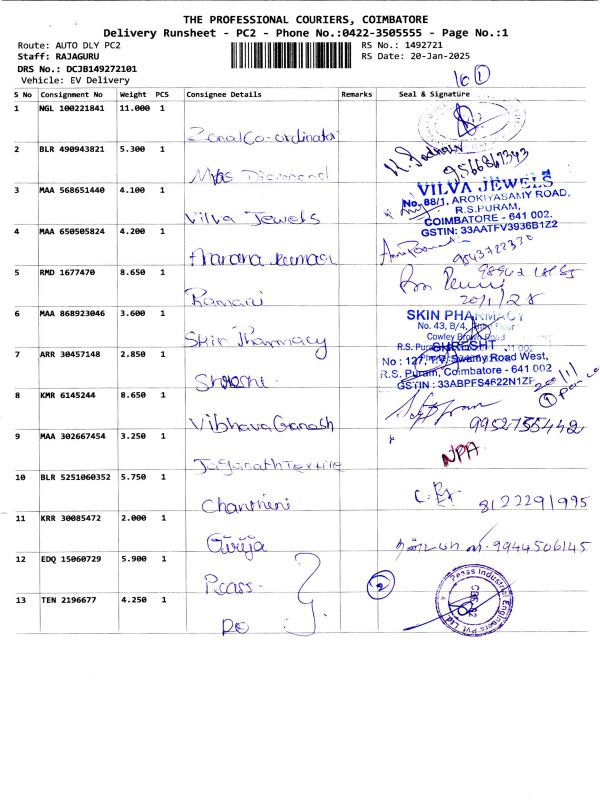 THE PROFESSIONAL COURIERS, COIMBATORE
Delivery Runsheet - PC2 - Phone No.:0422-3505555 - Page No.:1
Route: AUTO DLY PC2
RS No.: 1492721
Staff: RAJAGURU
RS Date: 20-Jan-2025
DRS No.: DCJB149272101
Vehicle: EV Delivery
S No Consignment No Weight PCS Consignee Details Remarks Seal & Signature
1 NGL 100221841 11.000 1
Zonal Co-ordinator
2 BLR 490943821 5.300 1
9566867343
Diamond
3 MAA 568651440 4.100 1
VILVA JEWELS
No. 88/1, AROKIYASAMY ROAD,
R.S.PURAM,
COIMBATORE - 641 002.
GSTIN: 33AATFV3936B1Z2
Vilva Jewels
4 MAA 650505824 4.200 1
5 RMD 1677470 8.650 1
Ramani
6 MAA 868923046 3.600 1
SKIN PHARMACY
No. 43, B/4,
Cowley Brown Road
R.S. Puram
Skin Pharmacy
7 ARR 30457148 2.850 1
SHRESHT
No : 127, T.V. Swamy Road West,
R.S. Puram, Coimbatore - 641 002
GSTIN : 33ABPFS4622N1ZF
8 KMR 6145244 8.650 1
Vibhava Ganesh
9952755442
9 MAA 302667454 3.250 1
NPA
Jaganath Textile
10 BLR 5251060352 5.750 1
8122291995
11 KRR 30085472 2.000 1
Girija
9944506145
12 EDQ 15060729 5.900 1
2
13 TEN 2196677 4.250 1
DO